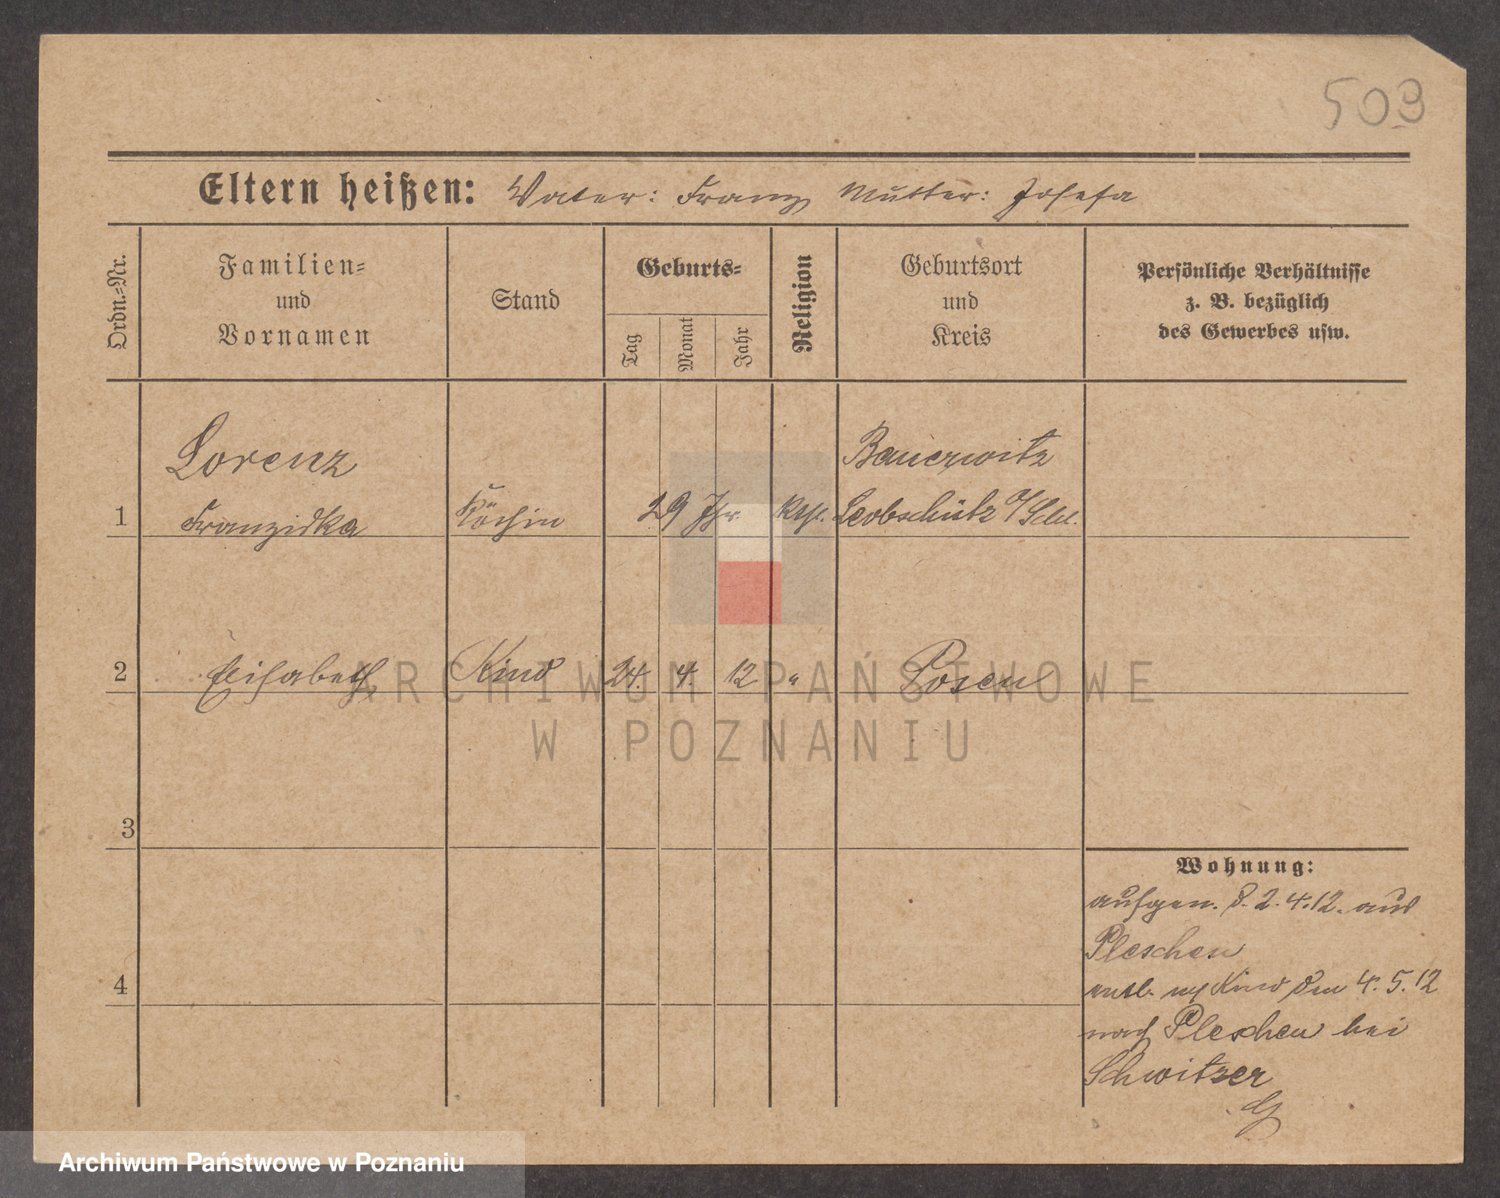 503
Eltern heißen: Vater: Franz Mutter: Josefa
Ordn.-Nr.
Familien- und Vornamen
Stand
Geburts-
Tag
Monat
Jahr
Religion
Geburtsort und Kreis
Persönliche Verhältnisse z. B. bezüglich des Gewerbes usw.
Lorenz
Bauerwitz
1 Franziska Köchin 29 Jhr. kth. Leobschütz O/Schl.
2 Elisabeth Kind 24. 4. 12 " Posen
3
4
Wohnung:
aufgen. d. 2.4.12. aus
Pleschen
entl. Kind den 4.5.12
nach Pleschen bei
Schwitzer
ARCHIWUM PAŃSTWOWE
W POZNANIU
Archiwum Państwowe w Poznaniu